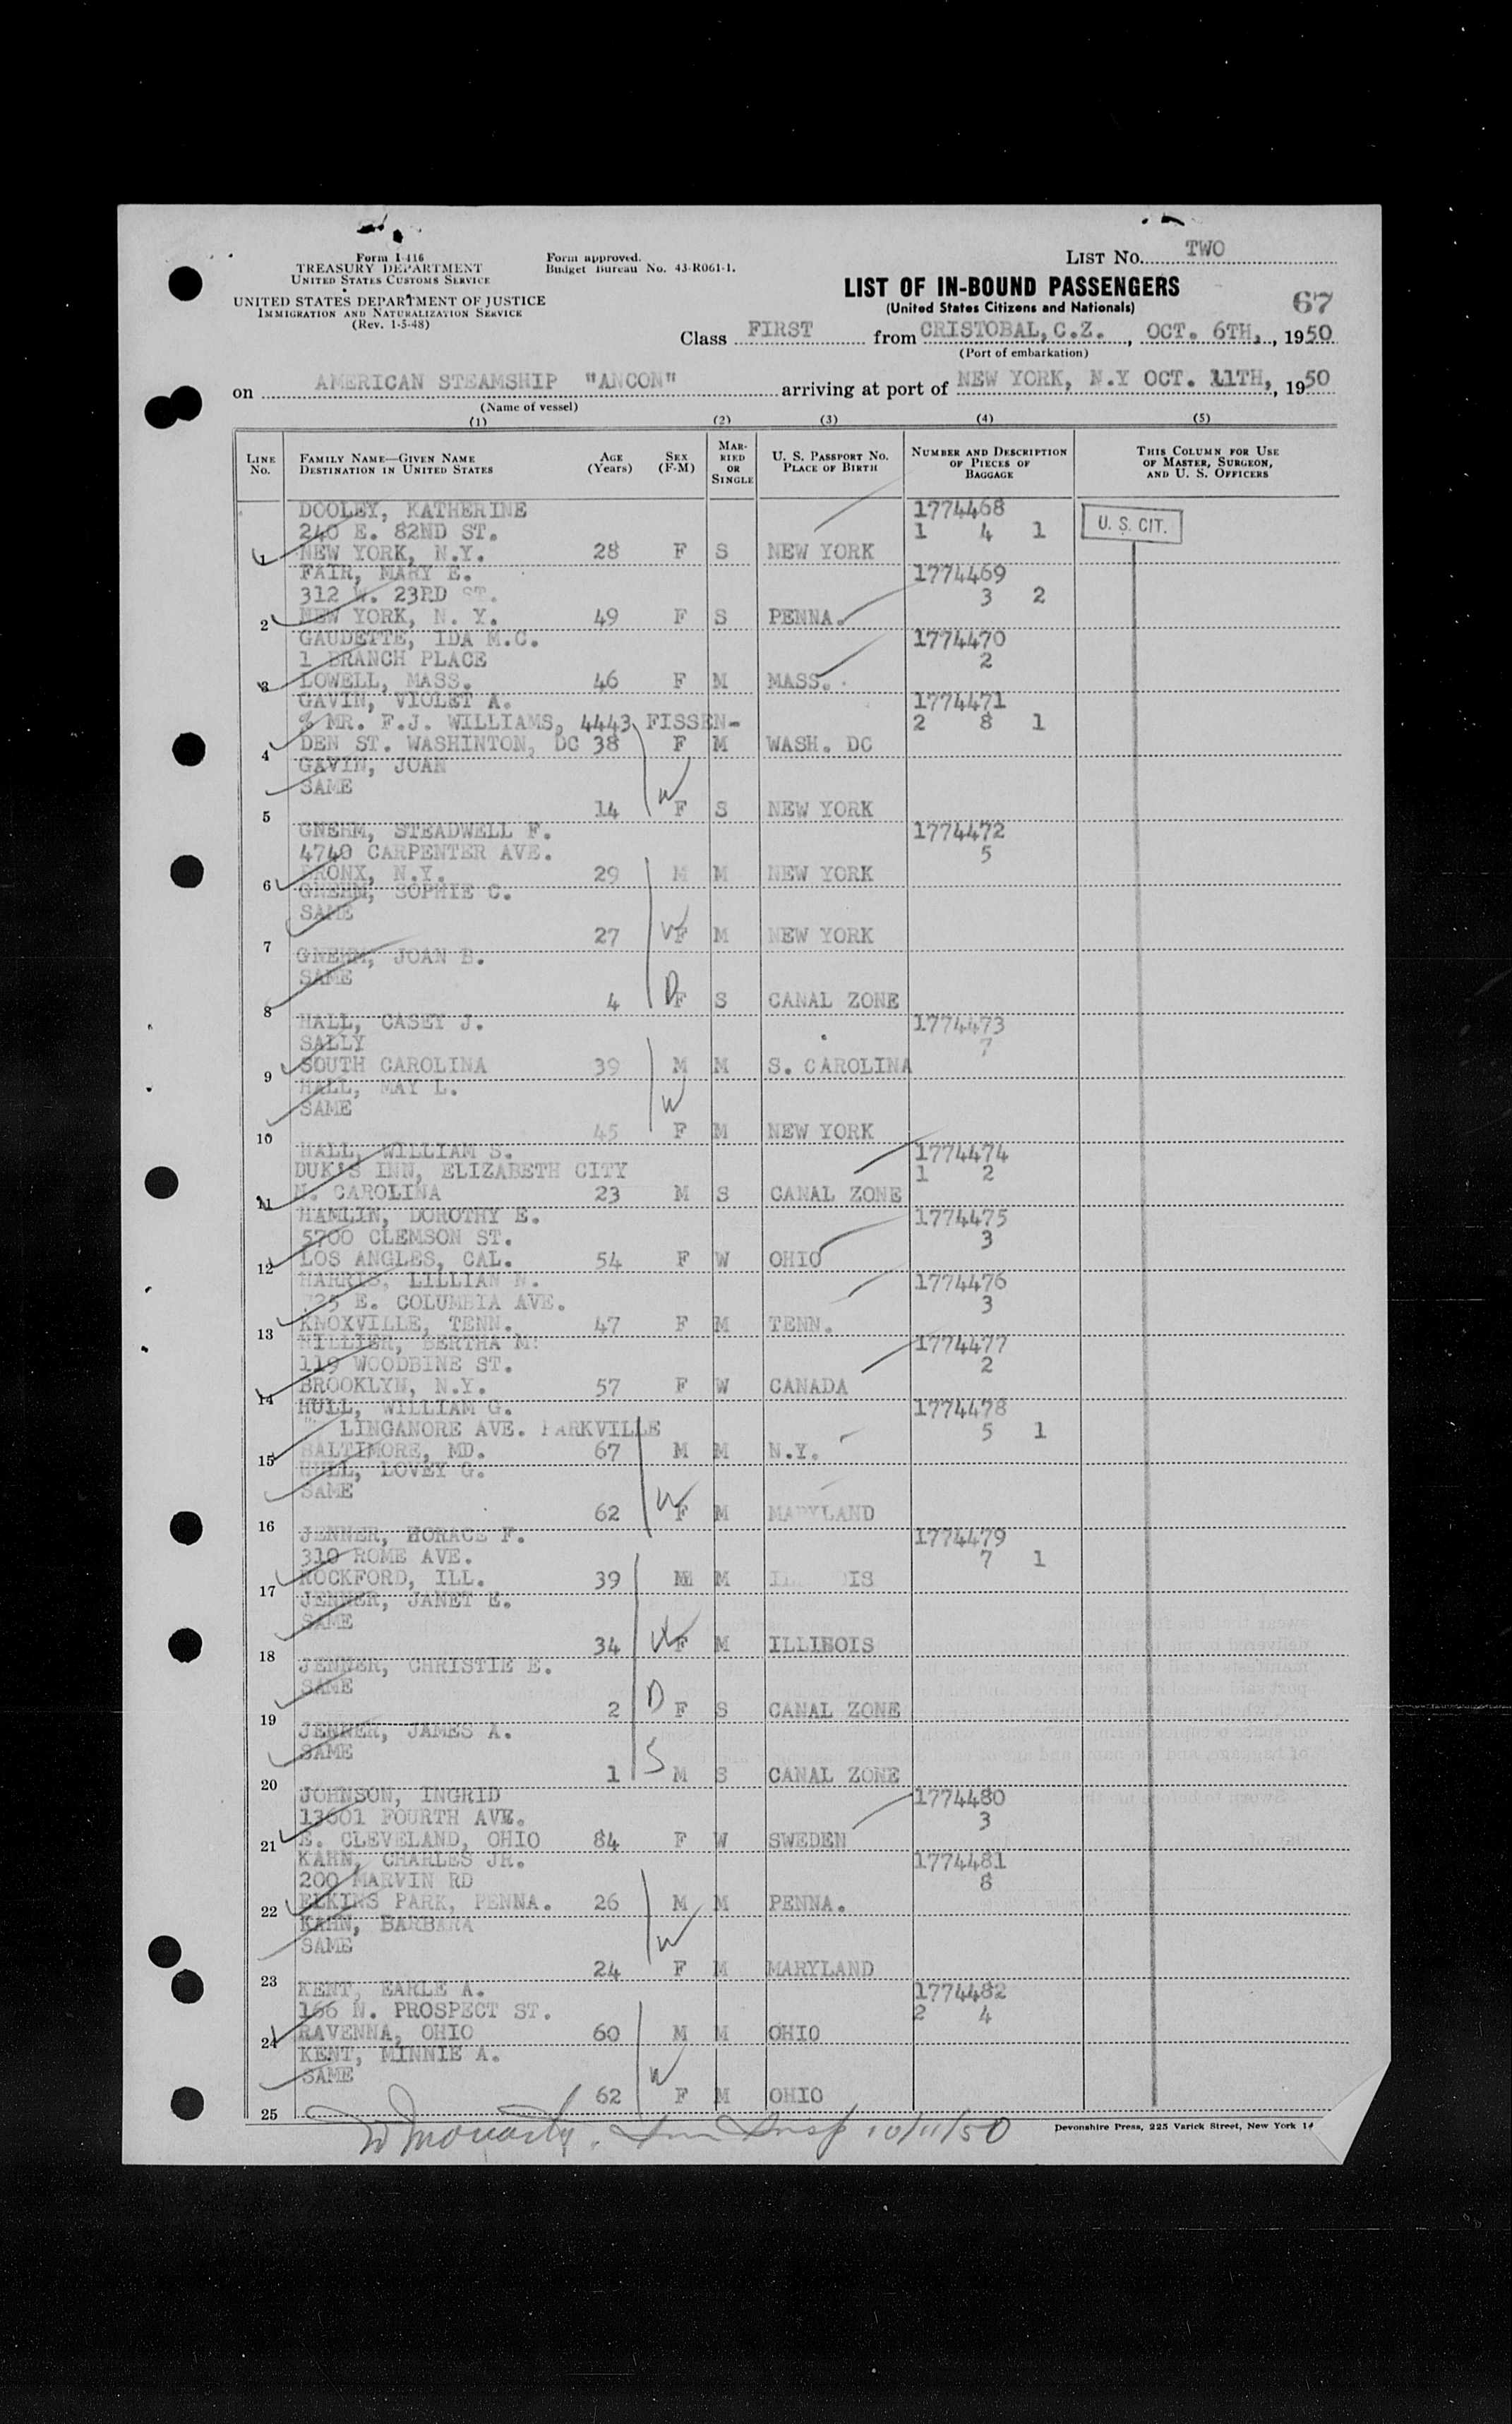 Form I-416
TREASURY DEPARTMENT
UNITED STATES CUSTOMS SERVICE
UNITED STATES DEPARTMENT OF JUSTICE
IMMIGRATION AND NATURALIZATION SERVICE
(Rev. 1-5-48)
Form approved.
Budget Bureau No. 43-R061-1.
LIST NO. TWO
LIST OF IN-BOUND PASSENGERS
(United States Citizens and Nationals)
67
Class FIRST from CRISTOBAL, C.Z., OCT. 6TH, , 1950
(Port of embarkation)
on AMERICAN STEAMSHIP "ANCON" arriving at port of NEW YORK, N.Y OCT. 11TH, , 1950
(Name of vessel)
(1) (2) (3) (4) (5)
LINE No. FAMILY NAME—GIVEN NAME DESTINATION IN UNITED STATES AGE (Years) SEX (F-M) MARRIED OR SINGLE U. S. PASSPORT NO. PLACE OF BIRTH NUMBER AND DESCRIPTION OF PIECES OF BAGGAGE THIS COLUMN FOR USE OF MASTER, SURGEON, AND U. S. OFFICERS
DOOLEY, KATHERINE 1774468
240 E. 82ND ST. 1 4 1 U. S. CIT.
1 NEW YORK, N.Y. 28 F S NEW YORK
FAIR, MARY E. 1774469
312 W. 23RD ST. 3 2
2 NEW YORK, N. Y. 49 F S PENNA.
GAUDETTE, IDA M.C. 1774470
1 BRANCH PLACE 2
3 LOWELL, MASS. 46 F M MASS.
GAVIN, VIOLET A. 1774471
% MR. F.J. WILLIAMS, 4443 FISSEN- 2 8 1
4 DEN ST. WASHINTON, DC 38 F M WASH. DC
GAVIN, JOAN
SAME W
5 14 F S NEW YORK
GNEHM, STEADWELL F. 1774472
4740 CARPENTER AVE. 5
6 BRONX, N.Y. 29 M M NEW YORK
GNEHM, SOPHIE C.
SAME
7 27 W F M NEW YORK
GNEHM, JOAN B.
SAME
8 4 D F S CANAL ZONE
HALL, CASEY J. 1774473
SALLY 7
9 SOUTH CAROLINA 39 M M S. CAROLINA
HALL, MAY L.
SAME W
10 45 F M NEW YORK
HALL, WILLIAM S. 1774474
DUK'S INN, ELIZABETH CITY 1 2
11 N. CAROLINA 23 M S CANAL ZONE
HAMLIN, DOROTHY E. 1774475
5700 CLEMSON ST. 3
12 LOS ANGLES, CAL. 54 F W OHIO
HARRIS, LILLIAN N. 1774476
725 E. COLUMBIA AVE. 3
13 KNOXVILLE, TENN. 47 F M TENN.
HILLIER, BERTHA M. 1774477
119 WOODBINE ST. 2
14 BROOKLYN, N.Y. 57 F W CANADA
HULL, WILLIAM G. 1774478
LINGANORE AVE. PARKVILLE 5 1
15 BALTIMORE, MD. 67 M M N.Y.
HULL, LOVEY G.
SAME
16 62 W F M MARYLAND
JENNER, HORACE F. 1774479
310 ROME AVE. 7 1
17 ROCKFORD, ILL. 39 M M
JENNER, JANET E.
SAME
18 34 W F M ILLINOIS
JENNER, CHRISTIE E.
SAME
19 2 D F S CANAL ZONE
JENNER, JAMES A.
SAME
20 1 S M S CANAL ZONE
JOHNSON, INGRID 1774480
13601 FOURTH AVE. 3
21 E. CLEVELAND, OHIO 84 F W SWEDEN
KAHN, CHARLES JR. 1774481
200 MARVIN RD 8
22 ELKINS PARK, PENNA. 26 M M PENNA.
KAHN, BARBARA
SAME W
23 24 F M MARYLAND
KENT, EARLE A. 1774482
166 N. PROSPECT ST. 2 4
24 RAVENNA, OHIO 60 M M OHIO
KENT, MINNIE A.
SAME W
25 62 F M OHIO
10/11/50
Devonshire Press, 225 Varick Street, New York 14